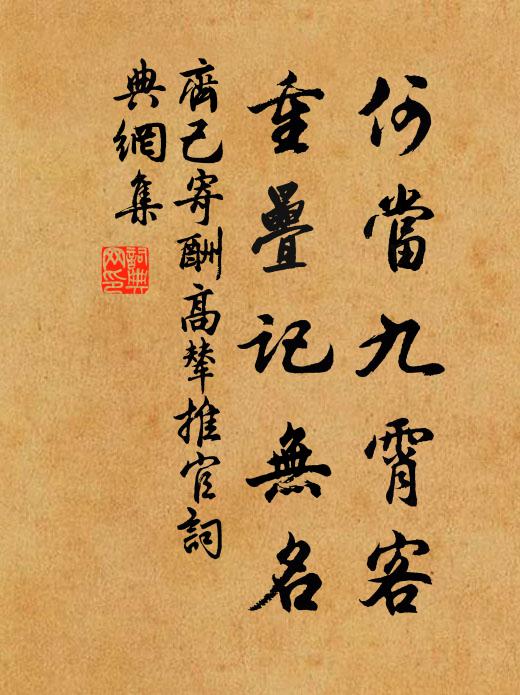 何當九霄客
重疊記無名
齊己寄酬高輦推官詞
典網集
詞典網印